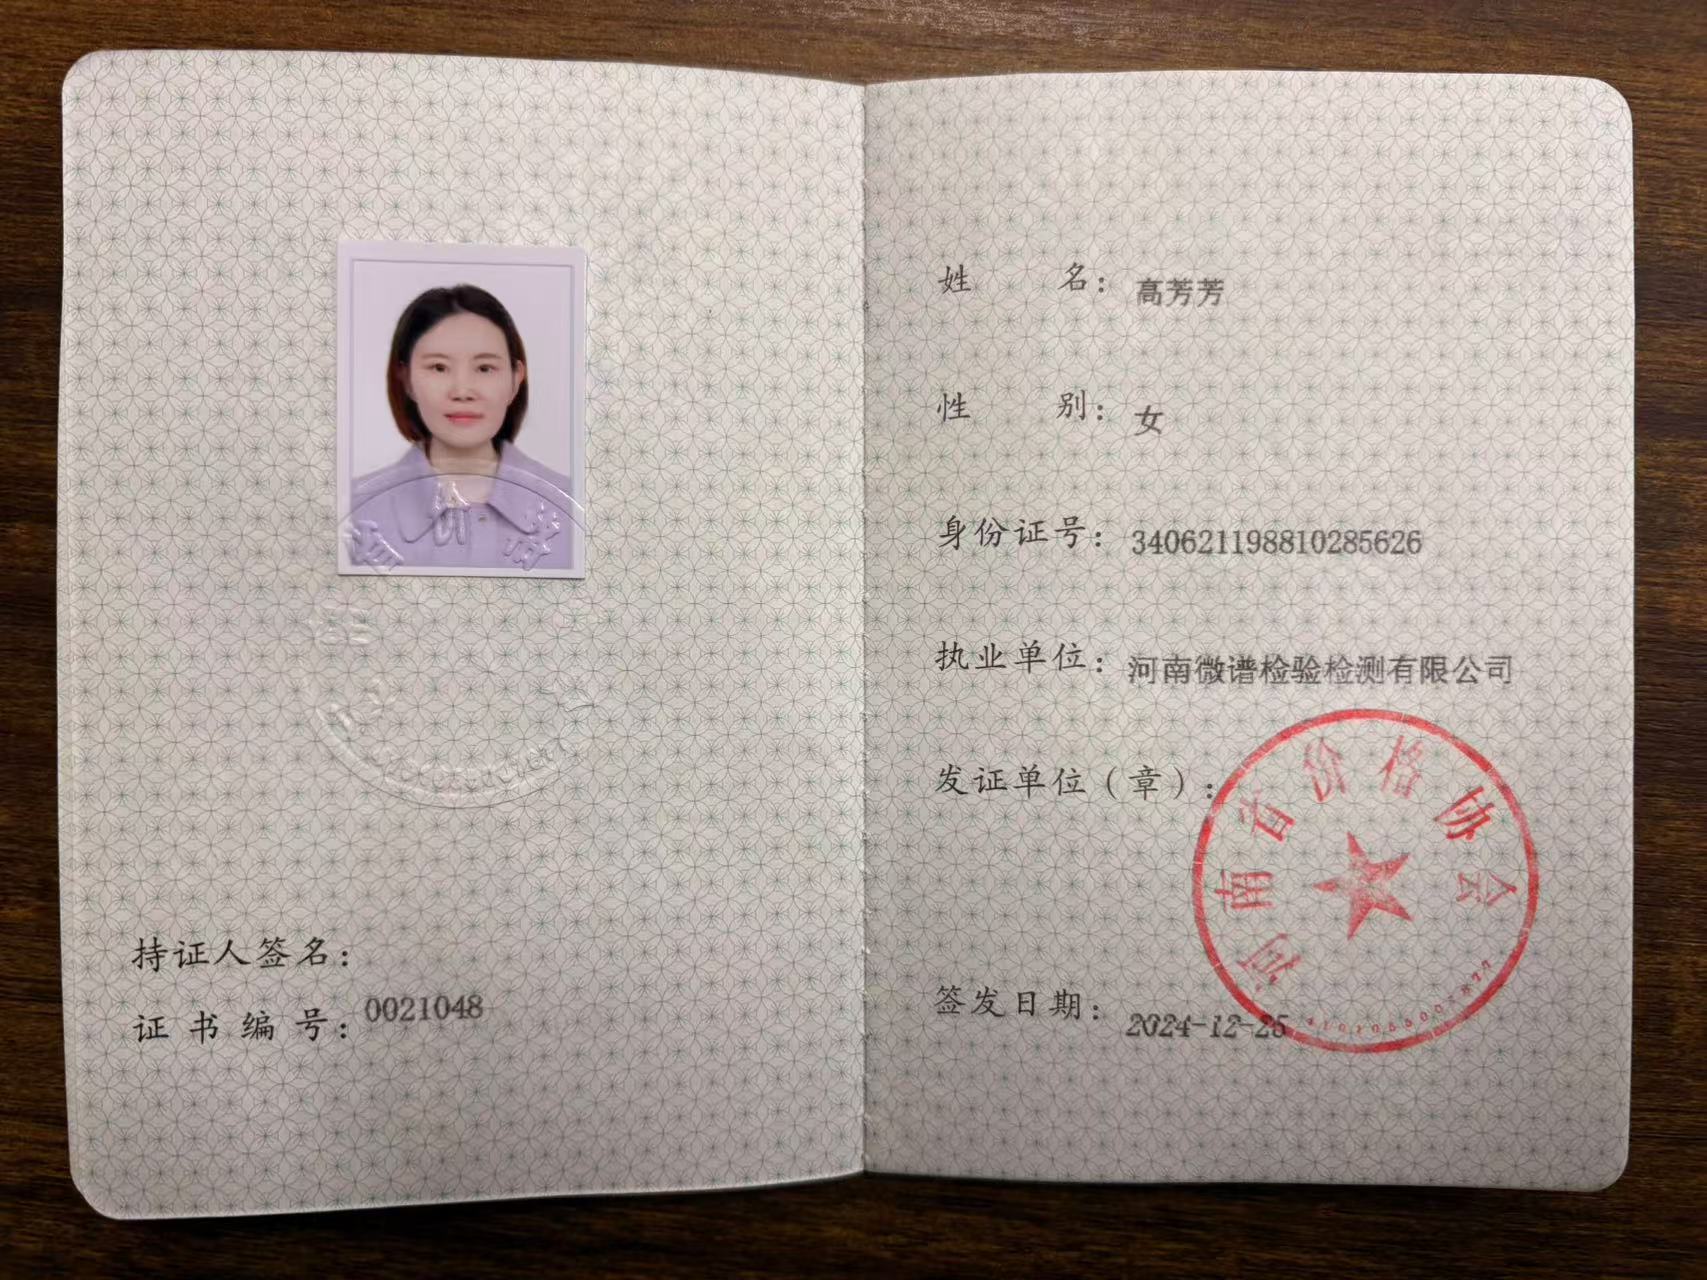 持证人签名：
证书编号：0021048
姓 名：高芳芳
性 别：女
身份证号：340621198810285626
执业单位：河南微谱检验检测有限公司
发证单位（章）：
河南省价格协会
签发日期：2024-12-25